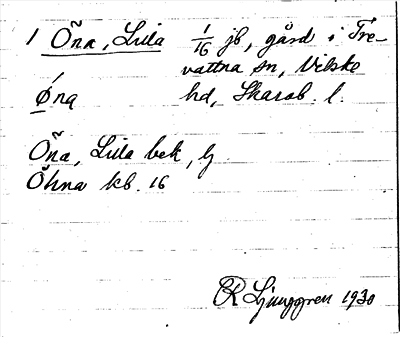 1 Õna, Lilla 1/16 jb, gård i Tre-
vattna sn, Vilske
ǿna hd, Skarab. l.
Õna, Lilla bek, lj
Öhna kb. 16
R Ljunggren 1930